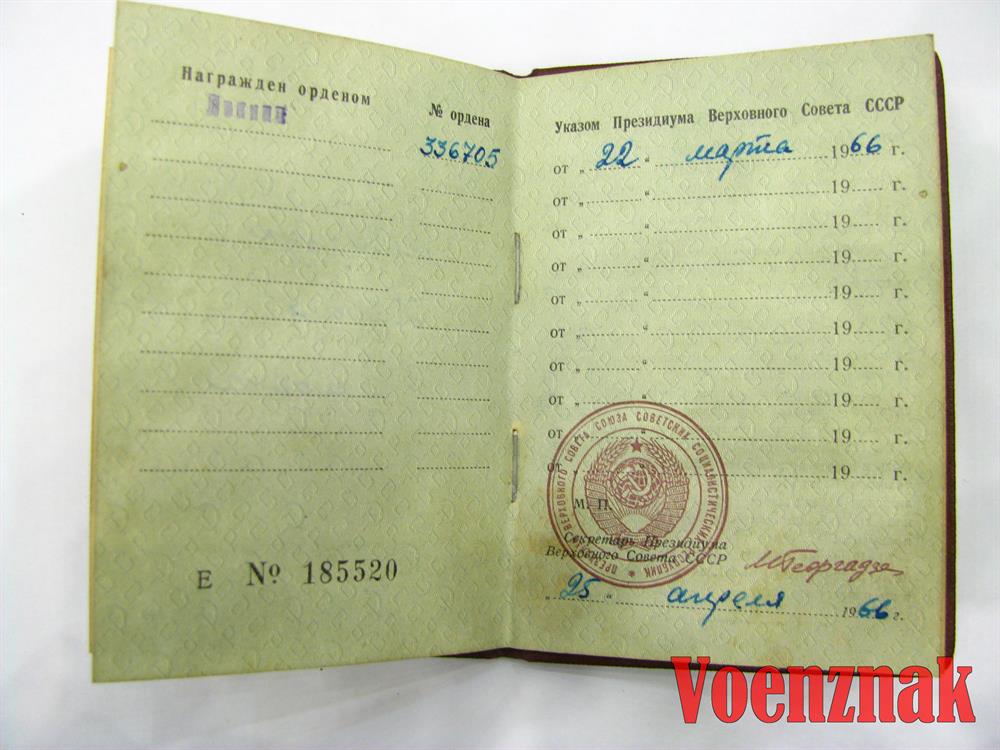 Награжден орденом
Ленина
№ ордена
336705
Е № 185520
Указом Президиума Верховного Совета СССР
от „ 22 “ марта 1966 г.
от „ “ 19 г.
от „ “ 19 г.
от „ “ 19 г.
от „ “ 19 г.
от „ “ 19 г.
от „ “ 19 г.
от „ “ 19 г.
от „ “ 19 г.
от „ “ 19 г.
ПРЕЗИДИУМ ВЕРХОВНОГО СОВЕТА СОЮЗА СОВЕТСКИХ СОЦИАЛИСТИЧЕСКИХ РЕСПУБЛИК
М. П.
Секретарь Президиума
Верховного Совета СССР
МГеоргадзе
„ 25 “ апреля 1966 г.
Voenznak